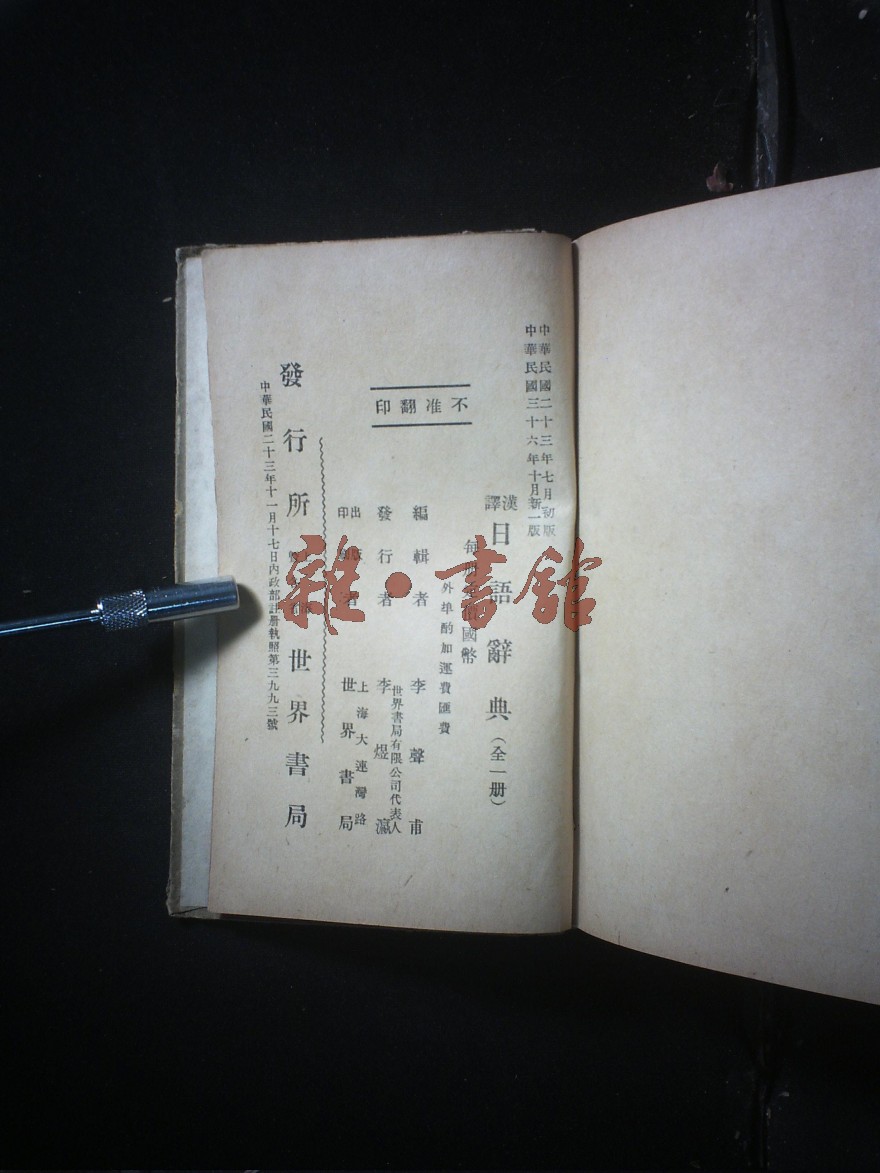 中華民國二十三年七月初版
中華民國三十六年十月新一版
漢譯日語辭典（全一册）
每册 國幣
外埠酌加運費匯費
不准翻印
編輯者 李聲甫
發行者 世界書局有限公司代表人 李煜瀛
出版 印 者 上海大連灣路 世界書局
發行所 世界書局
中華民國二十三年十一月十七日內政部註册執照第三九九三號
雜·書館